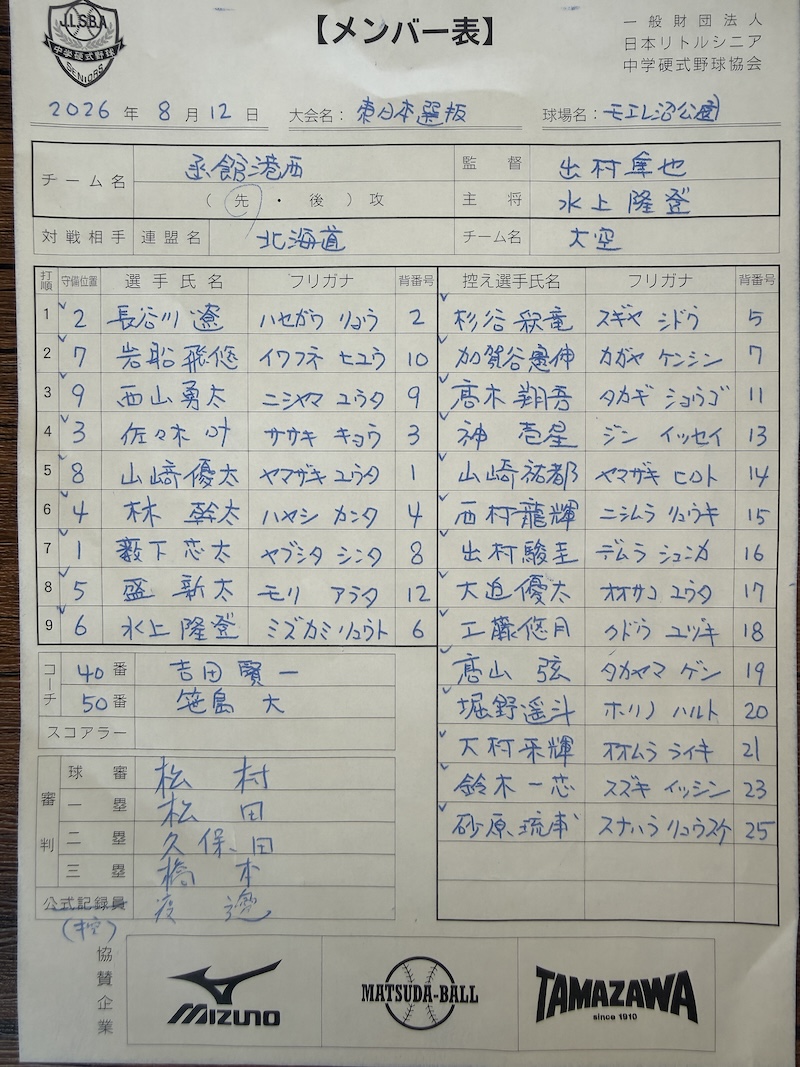 J.L.S.B.A
中学硬式野球
SENIORS
【メンバー表】
一般財団法人
日本リトルシニア
中学硬式野球協会
2026 年 8 月 12 日 大会名: 東日本選抜 球場名: モエレ沼公園
チーム名 函館港西 監督 出村 也
(先・後)攻 主将 水上隆登
対戦相手 連盟名 北海道 チーム名 大空
打順 守備位置 選手氏名 フリガナ 背番号 控え選手氏名 フリガナ 背番号
1 2 長谷川遼 ハセガワ リョウ 2 杉谷 竜 スギヤ シドウ 5
2 7 岩船飛悠 イワフネ ヒユウ 10 加賀谷憲伸 カガヤ ケンシン 7
3 9 西山勇太 ニシヤマ ユウタ 9 髙木翔吾 タカギ ショウゴ 11
4 3 佐々木叶 ササキ キョウ 3 神 壱星 ジン イッセイ 13
5 8 山﨑優太 ヤマザキ ユウタ 1 山崎祐都 ヤマザキ ヒロト 14
6 4 林 幹太 ハヤシ カンタ 4 西村龍輝 ニシムラ リュウキ 15
7 1 藪下芯太 ヤブシタ シンタ 8 出村駿圭 デムラ シュンカ 16
8 5 盛 新太 モリ アラタ 12 大迫優太 オオサコ ユウタ 17
9 6 水上隆登 ミズカミ リュウト 6 工藤悠月 クドウ ユヅキ 18
髙山 弦 タカヤマ ゲン 19
堀野遥斗 ホリノ ハルト 20
大村来輝 オオムラ ライキ 21
鈴木一芯 スズキ イッシン 23
砂原琉 スナハラ リュウスケ 25
コーチ 40番 吉田賢一
50番 笹島 大
スコアラー
審判 球審 松村
一塁 松田
二塁 久保田
三塁 橋本
公式記録員 渡邊
(控)
協賛企業
MIZUNO
MATSUDA-BALL
TAMAZAWA
since 1910